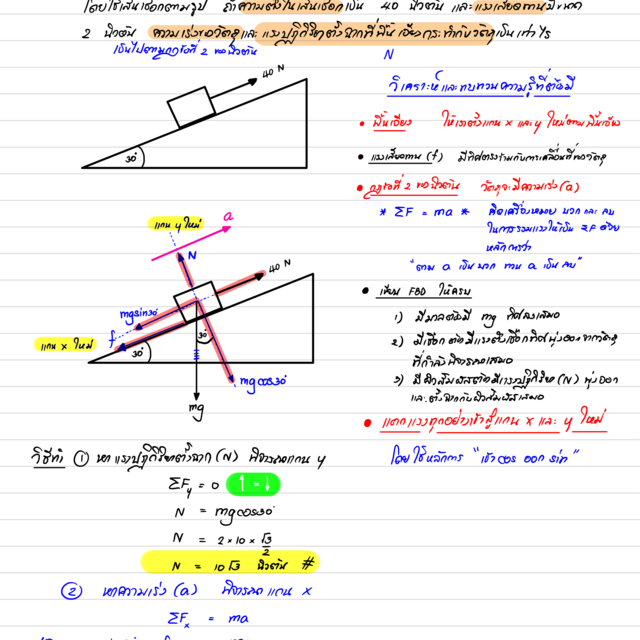 โดยใช้เส้นเชือกตามรูป ถ้าความตึงในเส้นเชือกเป็น 40 นิวตัน และแรงเสียดทานมีขนาด
2 นิวตัน ความเร่งของวัตถุและแรงปฏิกิริยาตั้งฉากที่พื้นเอียงกระทำกับวัตถุเป็นเท่าไร
เป็นไปตามกฎข้อที่ 2 ของนิวตัน
N
40 N
30°
วิเคราะห์และทบทวนความรู้ที่ต้องมี
• พื้นเอียง ให้เราตั้งแกน x และ y ใหม่ตามพื้นเอียง
• แรงเสียดทาน (f) มีทิศตรงข้ามกับการเคลื่อนที่ของวัตถุ
• กฎข้อที่ 2 ของนิวตัน วัตถุจะมีความเร่ง (a)
* ΣF = ma * คิดเครื่องหมาย บวก และ ลบ
ในการรวมแรงให้เป็น ΣF ด้วย
หลักการว่า
"ตาม a เป็น บวก ทาน a เป็น ลบ"
• เขียน FBD ให้ครบ
1) มีมวลต้องมี mg ทิศลงเสมอ
2) มีเชือก ต้องมีแรงตึงเชือกทิศพุ่งออกจากวัตถุ
ที่กำลังพิจารณาเสมอ
3) มีผิวสัมผัสต้องมีแรงปฏิกิริยา (N) พุ่งออก
และตั้งฉากกับผิวสัมผัสเสมอ
• แตกแรงทุกอย่างเข้าสู่แกน x และ y ใหม่
โดยใช้หลักการ "เข้า cos ออก sin"
แกน y ใหม่
a
N
40 N
mgsin30°
f
แกน x ใหม่
30°
30°
mgcos30°
mg
วิธีทำ ① หาแรงปฏิกิริยาตั้งฉาก (N) พิจารณาแกน y
ΣFy = 0 ↑ = ↓
N = mgcos30°
N = 2 × 10 × √3/2
N = 10√3 นิวตัน #
② หาความเร่ง (a) พิจารณาแกน x
ΣFx = ma